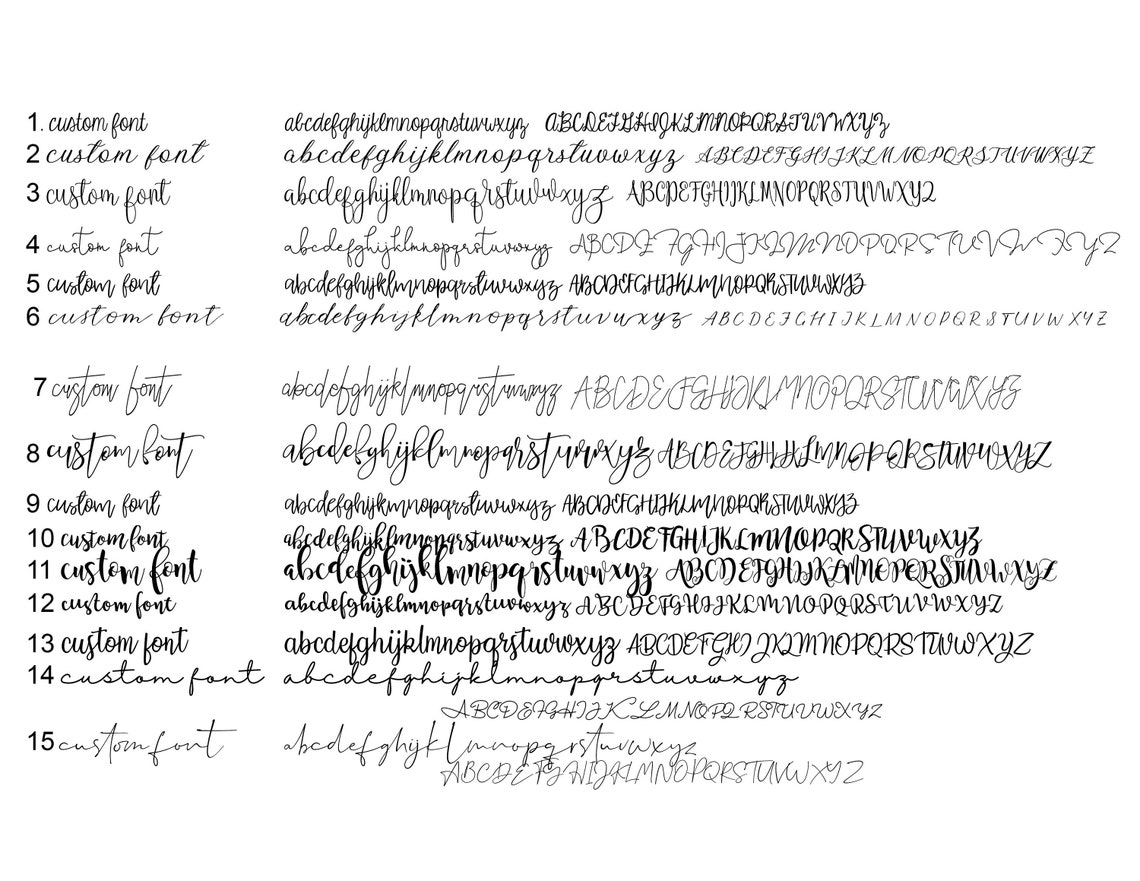 1. custom font abcdefghijklmnopqrstuvwxyz ABCDEFGHIJKLMNOPQRSTUVWXYZ
2 custom font abcdefghijklmnopqrstuvwxyz ABCDEFGHIJKLMNOPQRSTUVWXYZ
3 custom font abcdefghijklmnopqrstuvwxyz ABCDEFGHIJKLMNOPQRSTUVWXYZ
4 custom font abcdefghijklmnopqrstuvwxyz ABCDEFGHIJKLMNOPQRSTUVWXYZ
5 custom font abcdefghijklmnopqrstuvwxyz ABCDEFGHIJKLMNOPQRSTUVWXYZ
6 custom font abcdefghijklmnopqrstuvwxyz ABCDEFGHIJKLMNOPQRSTUVWXYZ
7 custom font abcdefghijklmnopqrstuvwxyz ABCDEFGHIJKLMNOPQRSTUVWXYZ
8 custom font abcdefghijklmnopqrstuvwxyz ABCDEFGHIJKLMNOPQRSTUVWXYZ
9 custom font abcdefghijklmnopqrstuvwxyz ABCDEFGHIJKLMNOPQRSTUVWXYZ
10 custom font abcdefghijklmnopqrstuvwxyz ABCDEFGHIJKLMNOPQRSTUVWXYZ
11 custom font abcdefghijklmnopqrstuvwxyz ABCDEFGHIJKLMNOPQRSTUVWXYZ
12 custom font abcdefghijklmnopqrstuvwxyz ABCDEFGHIJKLMNOPQRSTUVWXYZ
13 custom font abcdefghijklmnopqrstuvwxyz ABCDEFGHIJKLMNOPQRSTUVWXYZ
14 custom font abcdefghijklmnopqrstuvwxyz
ABCDEFGHIJKLMNOPQRSTUVWXYZ
15 custom font abcdefghijklmnopqrstuvwxyz
ABCDEFGHIJKLMNOPQRSTUVWXYZ